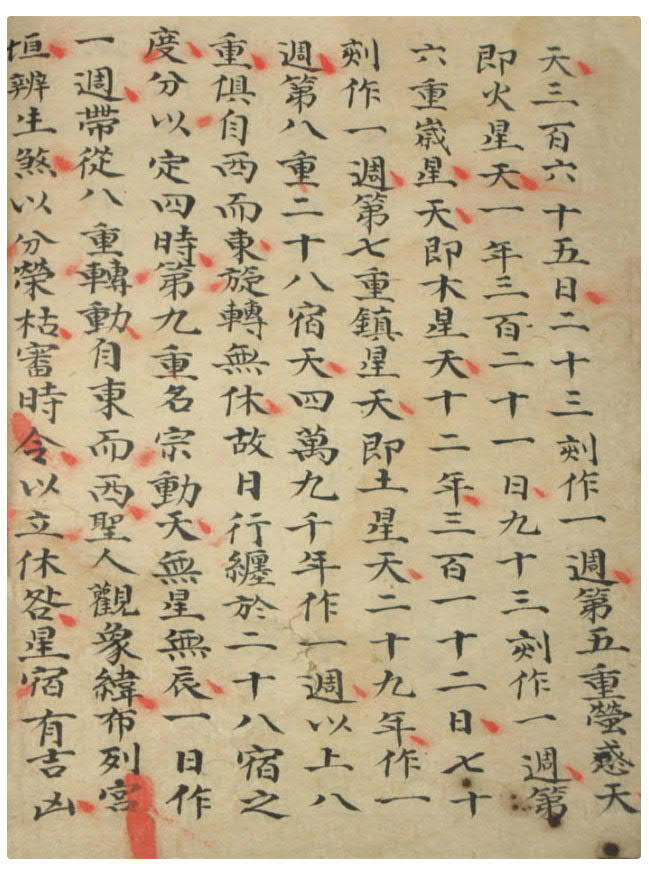 天三百六十五日二十三刻作一週第五重螢惑天
即火星天一年三百二十一日九十三刻作一週第
六重嵗星天即木星天十二年三百一十二日七十
刻作一週第七重鎮星天即土星天二十九年作一
週第八重二十八宿天四萬九千年作一週以上八
重俱自西而東旋轉無休故日行纏於二十八宿之
度分以定四時第九重名宗動天無星無辰一日作
一週帶從八重轉動自東而西聖人觀象緯布列宮
垣辨生煞以分榮枯審時令以立休咎星宿有吉凶